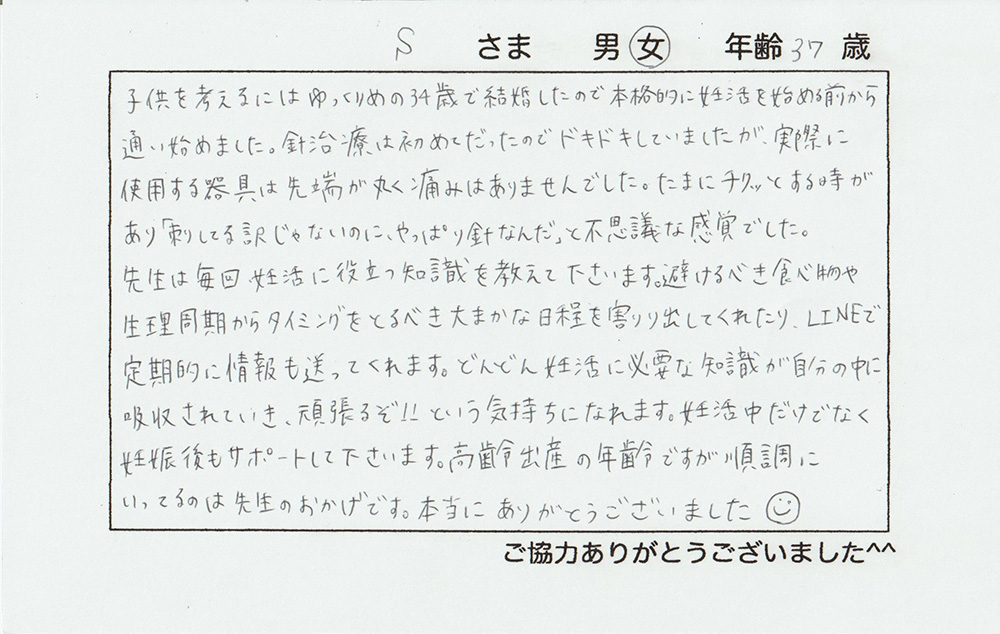 S さま 男 女 年齢 37 歳
子供を考えるにはゆっくりめの34歳で結婚したので本格的に妊活を始める前から
通い始めました。針治療は初めてだったのでドキドキしていましたが、実際に
使用する器具は先端が丸く痛みはありませんでした。たまにチクッとする時が
あり「刺してる訳じゃないのに、やっぱり針なんだ」と不思議な感覚でした。
先生は毎回妊活に役立つ知識を教えて下さいます。避けるべき食べ物や
生理周期からタイミングをとるべき大まかな日程を割りり出してくれたり、LINEで
定期的に情報も送ってくれます。どんどん妊活に必要な知識が自分の中に
吸収されていき、頑張るぞ!!という気持ちになれます。妊活中だけでなく
妊娠後もサポートして下さいます。高齢出産の年齢ですが順調に
いってるのは先生のおかげです。本当にありがとうございました
ご協力ありがとうございました^^